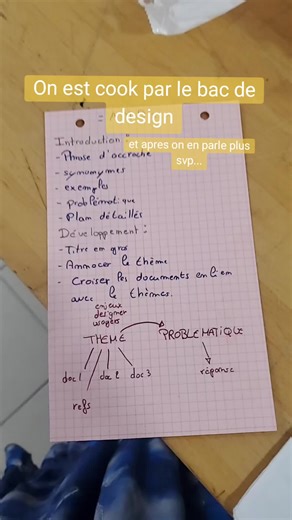 On est cook par le bac de
design
et apres on en parle plus
svp...
Introduction:
- Phrase d'accroche
- synonymes
- exemples
- problématique
- Plan détaillés
Développement:
- Titre en gros
- Annoncer le thème
- Croiser les documents en lien
avec le thèmes.
enjeux
designer
usagers
THEME
PROBLEMATIQUE
doc 1
doc 2
doc 3
réponse
refs